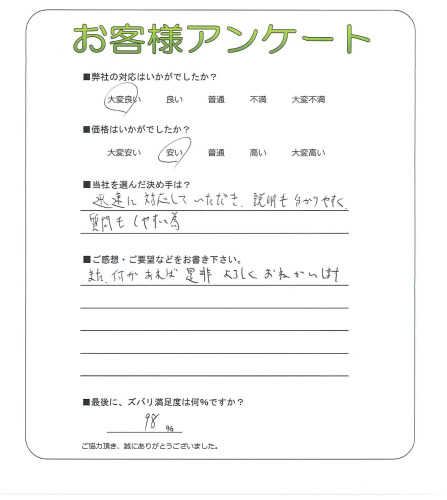 お客様アンケート
■弊社の対応はいかがでしたか？
大変良い 良い 普通 不満 大変不満
■価格はいかがでしたか？
大変安い 安い 普通 高い 大変高い
■当社を選んだ決め手は？
迅速に対応していただき、説明も分かりやすく
質問もしやすい為
■ご感想・ご要望などをお書き下さい。
また、何かあれば是非よろしくおねがいします
■最後に、ズバリ満足度は何%ですか？
98 %
ご協力頂き、誠にありがとうございました。